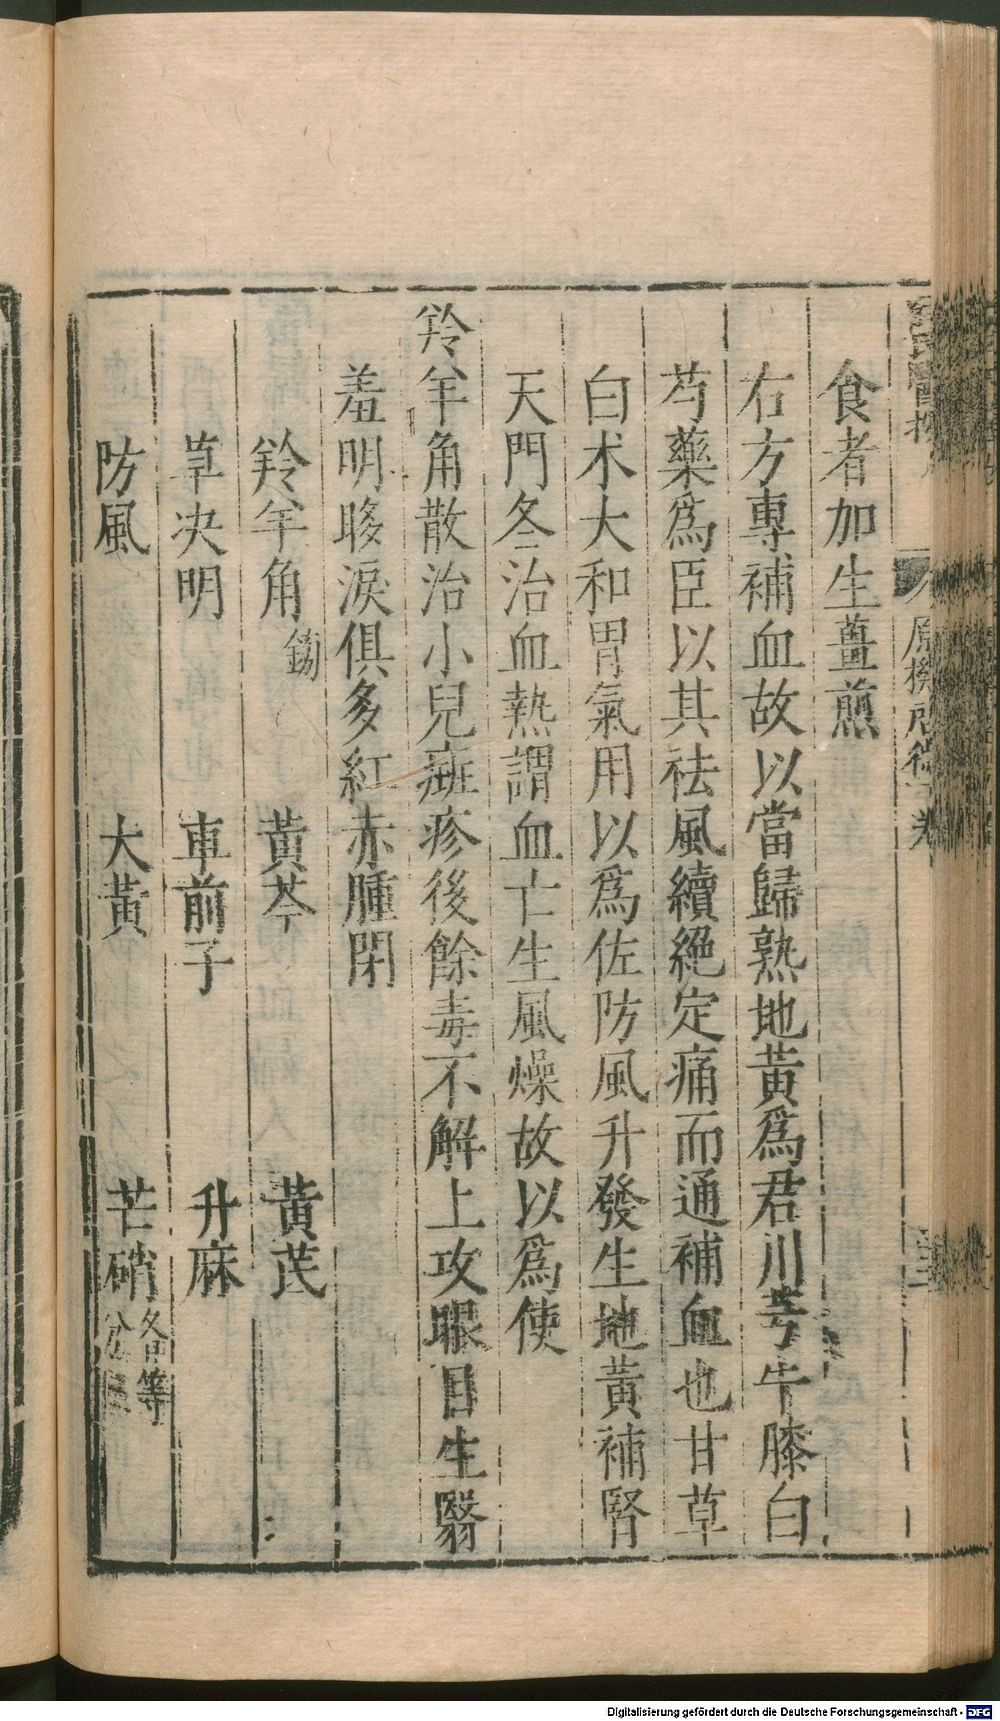 食者加生薑煎
右方專補血故以當歸熟地黃爲君川芎牛膝白
芍藥爲臣以其祛風續絕定痛而通補血也甘草
白朮大和胃氣用以爲佐防風升發生地黃補腎
天門冬治血熱謂血亡生風燥故以爲使
羚羊角散治小兒斑疹後餘毒不解上攻眼目生翳
羞明眵淚俱多紅赤腫閉
羚羊角鎊 黃芩 黃芪
草決明 車前子 升麻
防風 大黃 芒硝各等分
原機啓微 卷
Digitalisierung gefördert durch die Deutsche Forschungsgemeinschaft - DFG